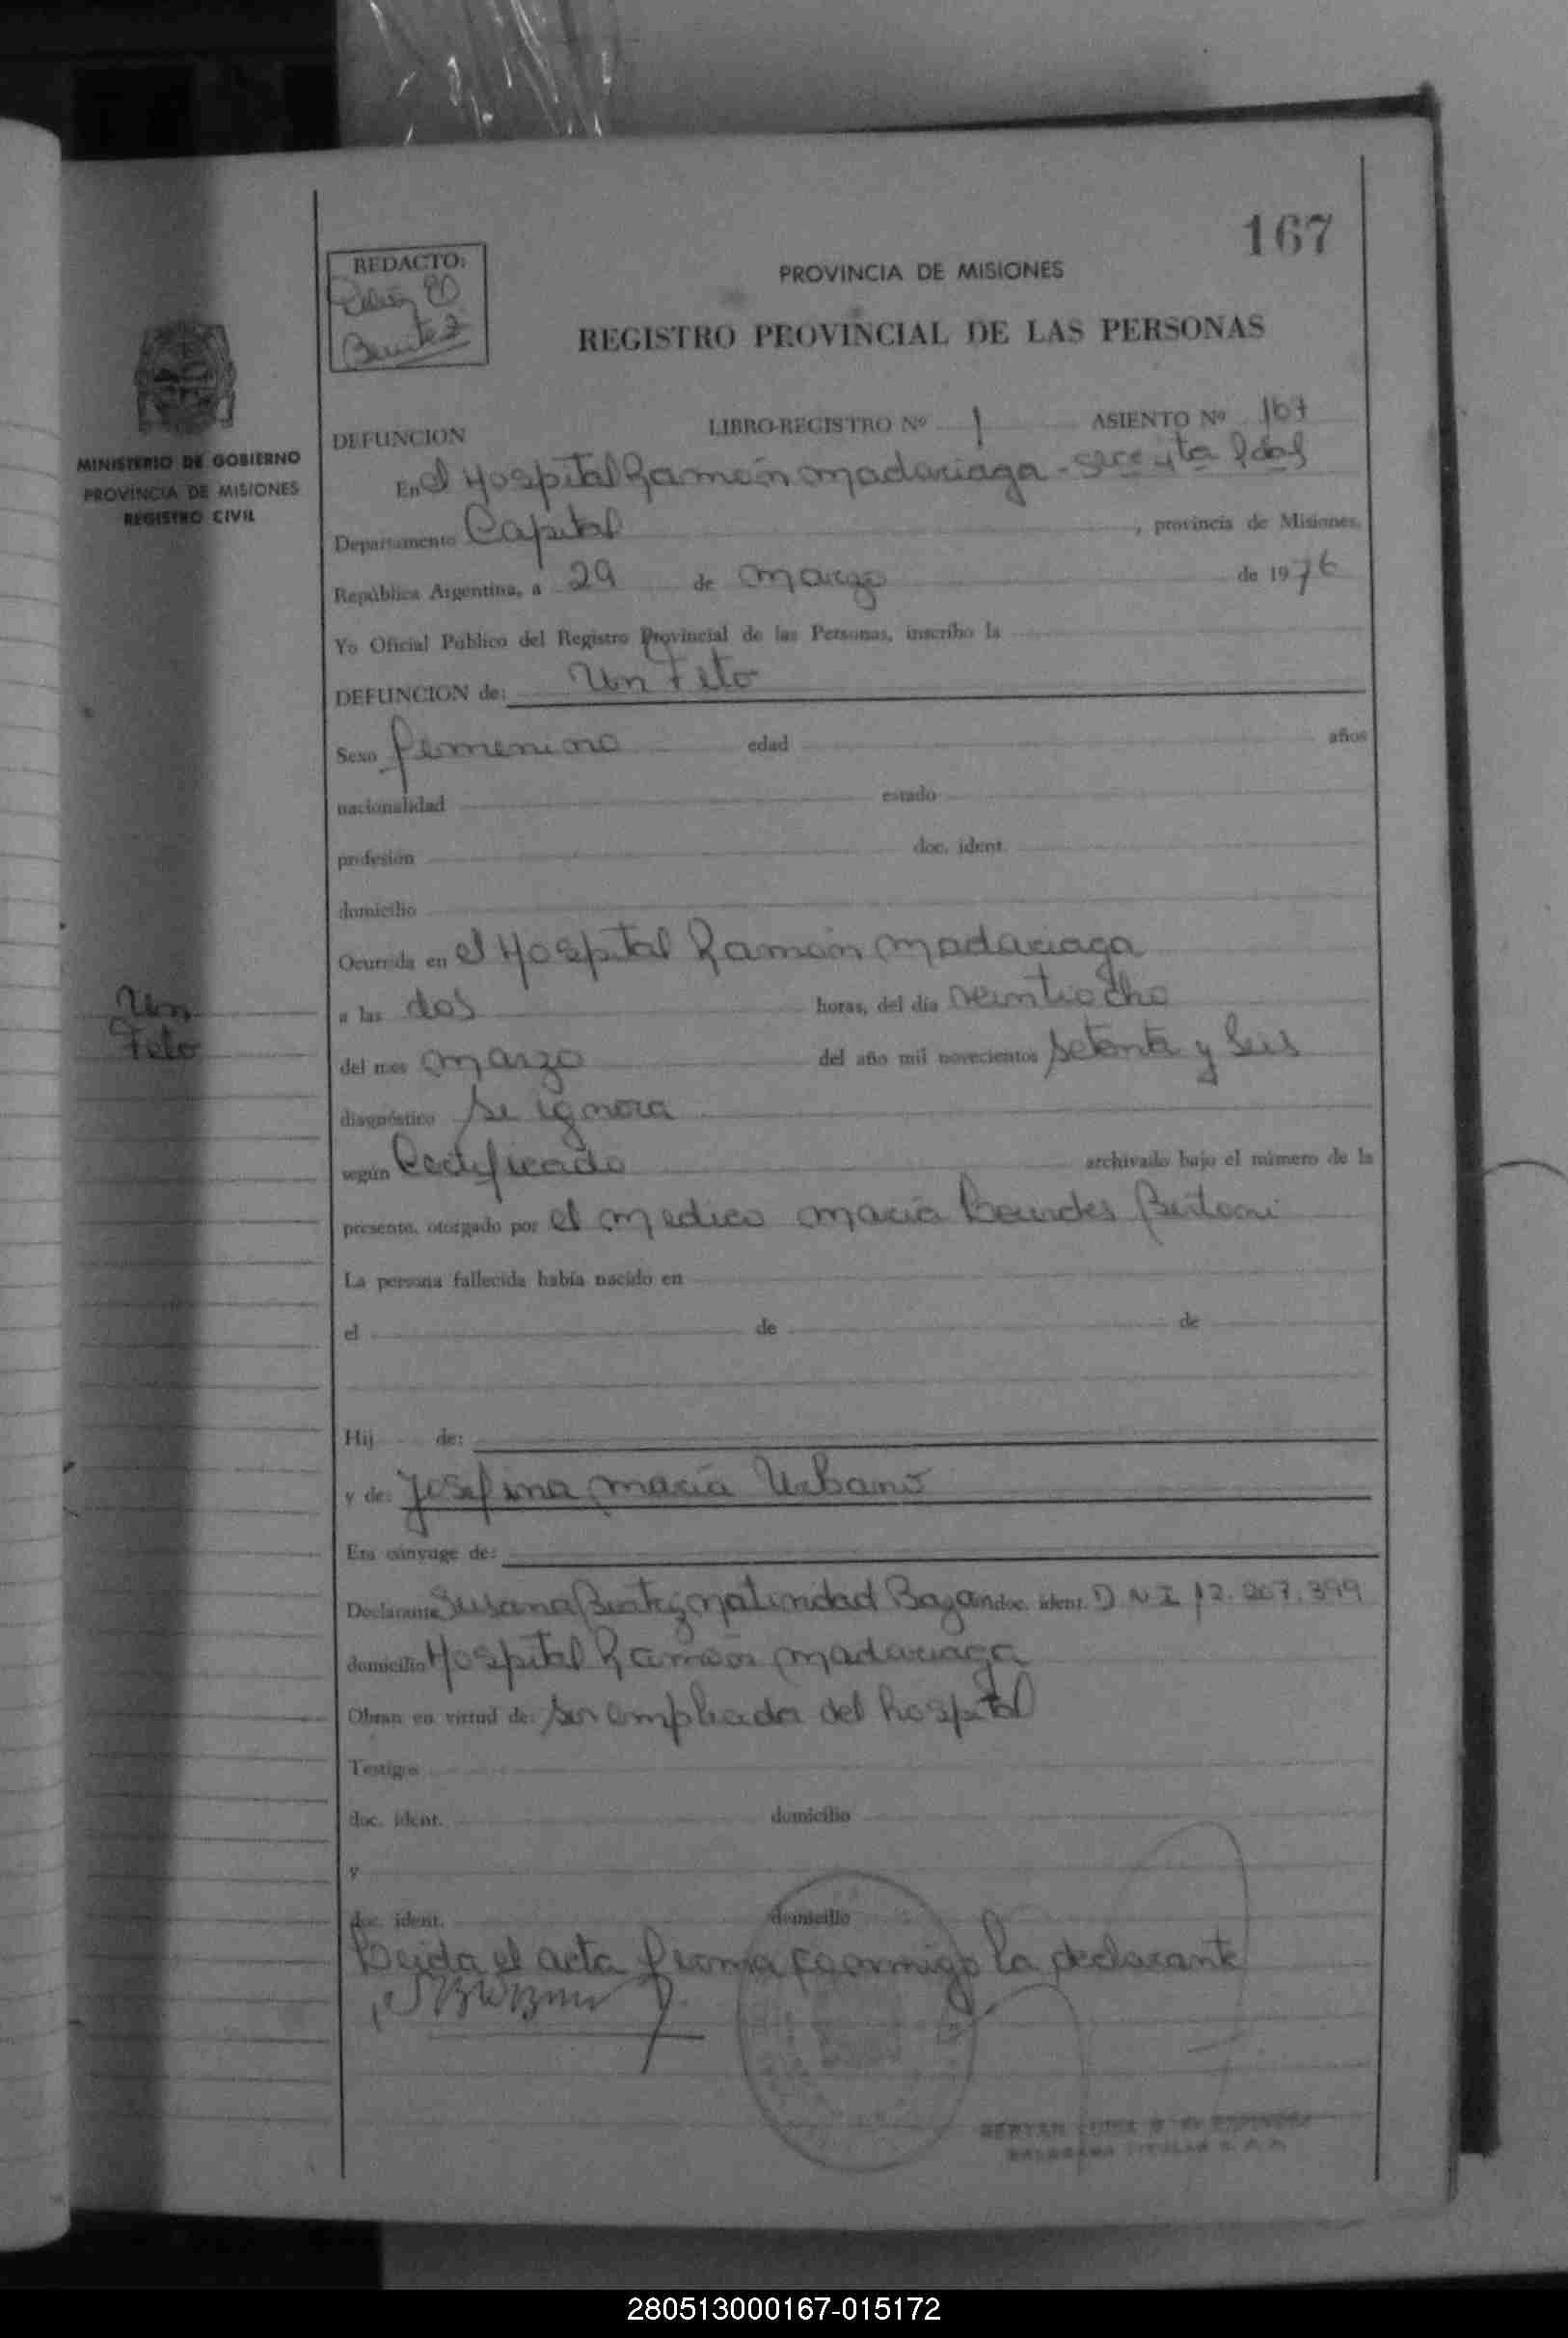 167
REDACTO:
Benitez
PROVINCIA DE MISIONES
REGISTRO PROVINCIAL DE LAS PERSONAS
MINISTERIO DE GOBIERNO
PROVINCIA DE MISIONES
REGISTRO CIVIL
DEFUNCION LIBRO-REGISTRO Nº 1 ASIENTO Nº 167
En el Hospital Ramón Madariaga
Departamento Capital, provincia de Misiones,
República Argentina, a 29 de marzo de 1976
Yo Oficial Público del Registro Provincial de las Personas, inscribo la
DEFUNCION de: Un Feto
Sexo femenino edad años
nacionalidad estado
profesión doc. ident.
domicilio
Ocurrida en el Hospital Ramón Madariaga
Un
Feto
a las dos horas, del día veintiocho
del mes marzo del año mil novecientos setenta y seis
diagnóstico se ignora
según Certificado archivado bajo el número de la
presente, otorgado por el medico maria Lourdes Bertoni
La persona fallecida había nacido en
el de de
Hij de:
y de: Josefina maria Urbano
Era cónyuge de:
Declarante Susana Beatriz Natividad Bazan doc. ident. D N I 12.207.399
domicilio Hospital Ramón Madariaga
Obran en virtud de: ser empleada del hospital
Testigos
doc. ident. domicilio
y
doc. ident. domicilio
Leida el acta firma conmigo la declarante
280513000167-015172